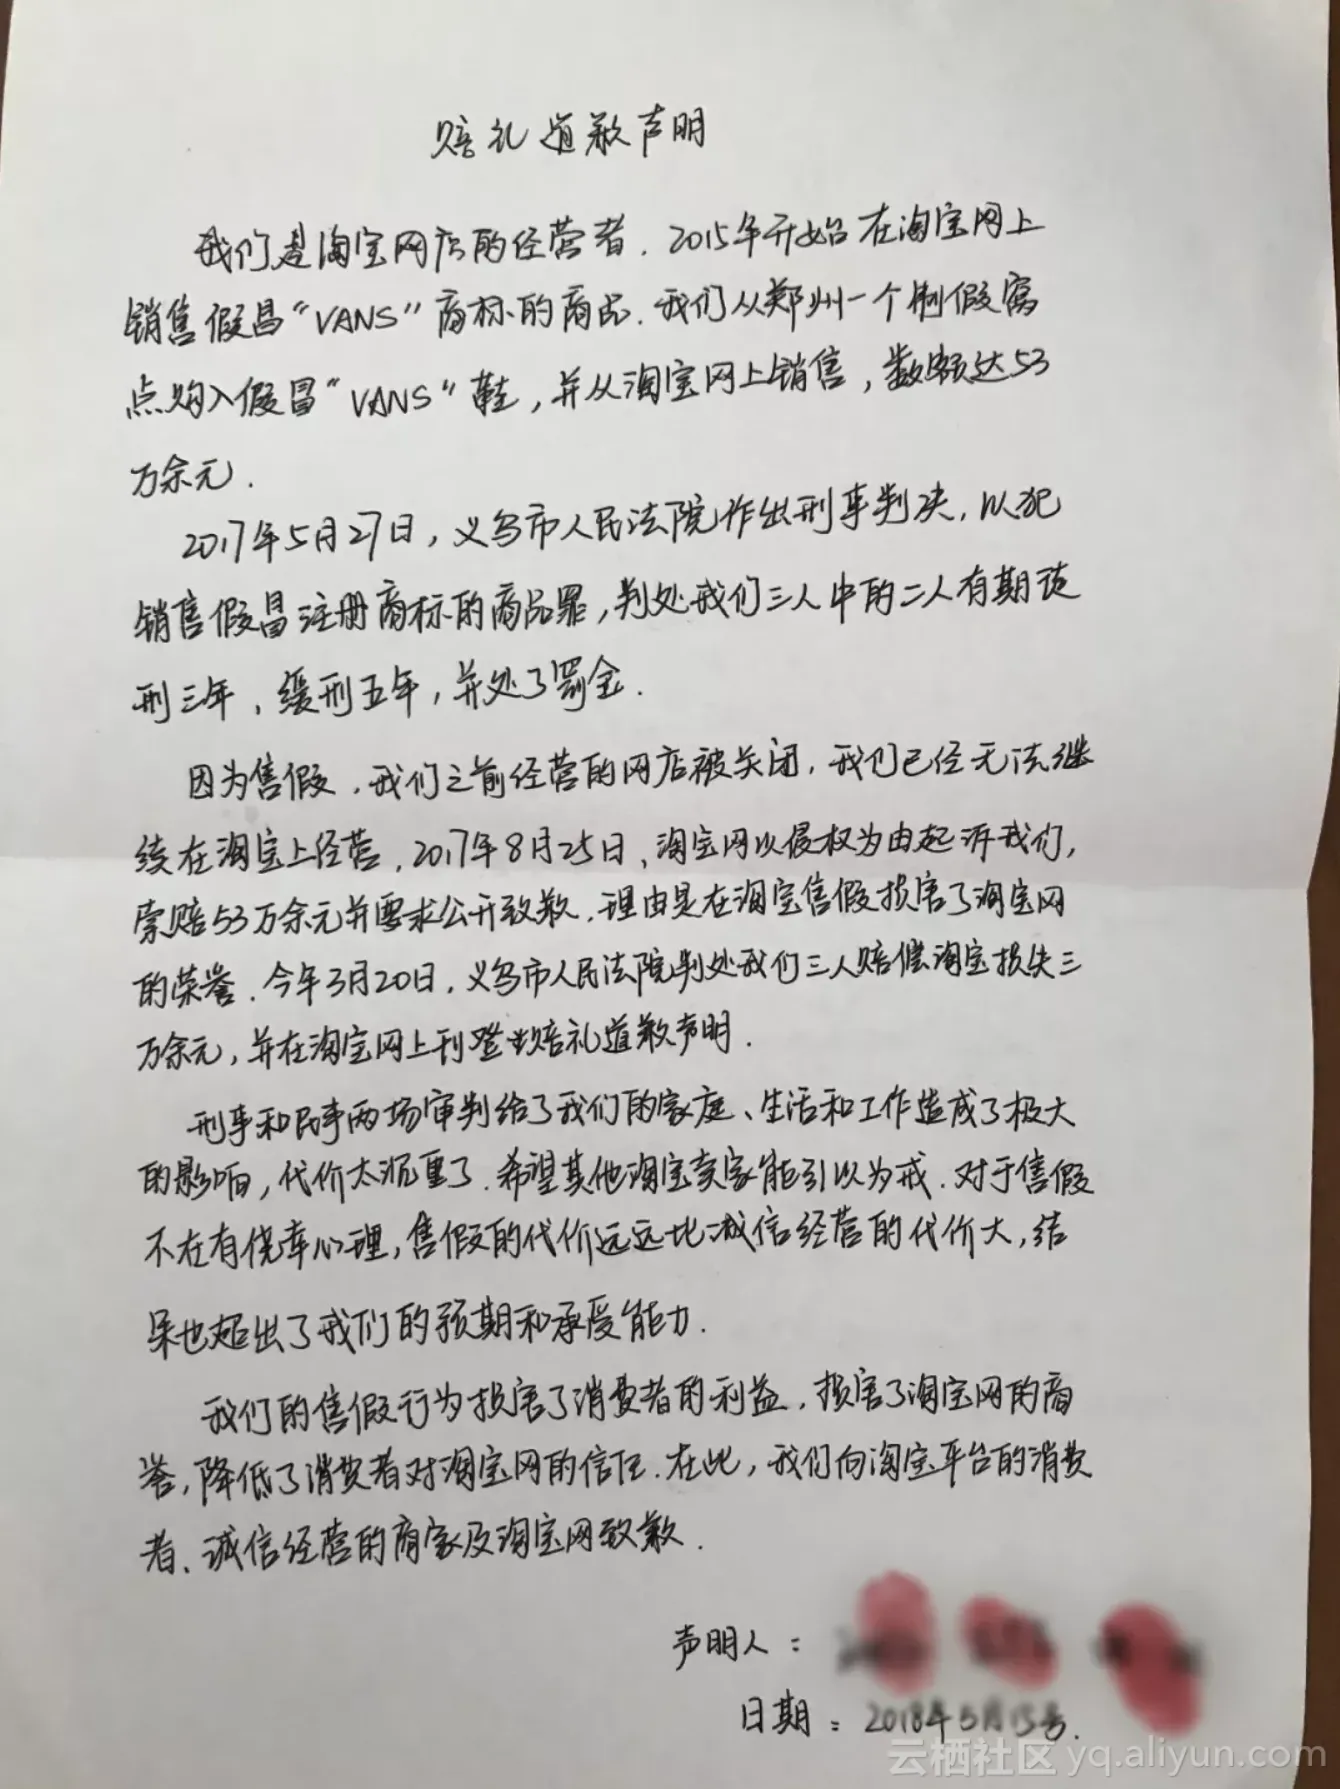 赔礼道歉声明
我们是淘宝网店的经营者.2015年开始在淘宝网上
销售假冒“VANS”商标的商品.我们从郑州一个制假窝
点购入假冒“VANS”鞋,并从淘宝网上销售,数额达53
万余元.
2017年5月27日,义乌市人民法院作出刑事判决,以犯
销售假冒注册商标的商品罪,判处我们三人中的二人有期徒
刑三年,缓刑五年,并处了罚金.
因为售假,我们之前经营的网店被关闭,我们已经无法继
续在淘宝上经营.2017年8月25日、淘宝网以侵权为由起诉我们,
索赔53万余元并要求公开致歉.理由是在淘宝售假损害了淘宝网
的荣誉.今年3月20日,义乌市人民法院判处我们三人赔偿淘宝损失三
万余元,并在淘宝网上刊登赔礼道歉声明.
刑事和民事两场审判给了我们的家庭、生活和工作造成了极大
的影响,代价太沉重了.希望其他淘宝卖家能引以为戒.对于售假
不在有侥幸心理,售假的代价远远比诚信经营的代价大,结
果也超出了我们的预期和承受能力.
我们的售假行为损害了消费者的利益,损害了淘宝网的商
誉,降低了消费者对淘宝网的信任.在此,我们向淘宝平台的消费
者、诚信经营的商家及淘宝网致歉.
声明人:
日期:2018年5月15号.
云栖社区 yq.aliyun.com